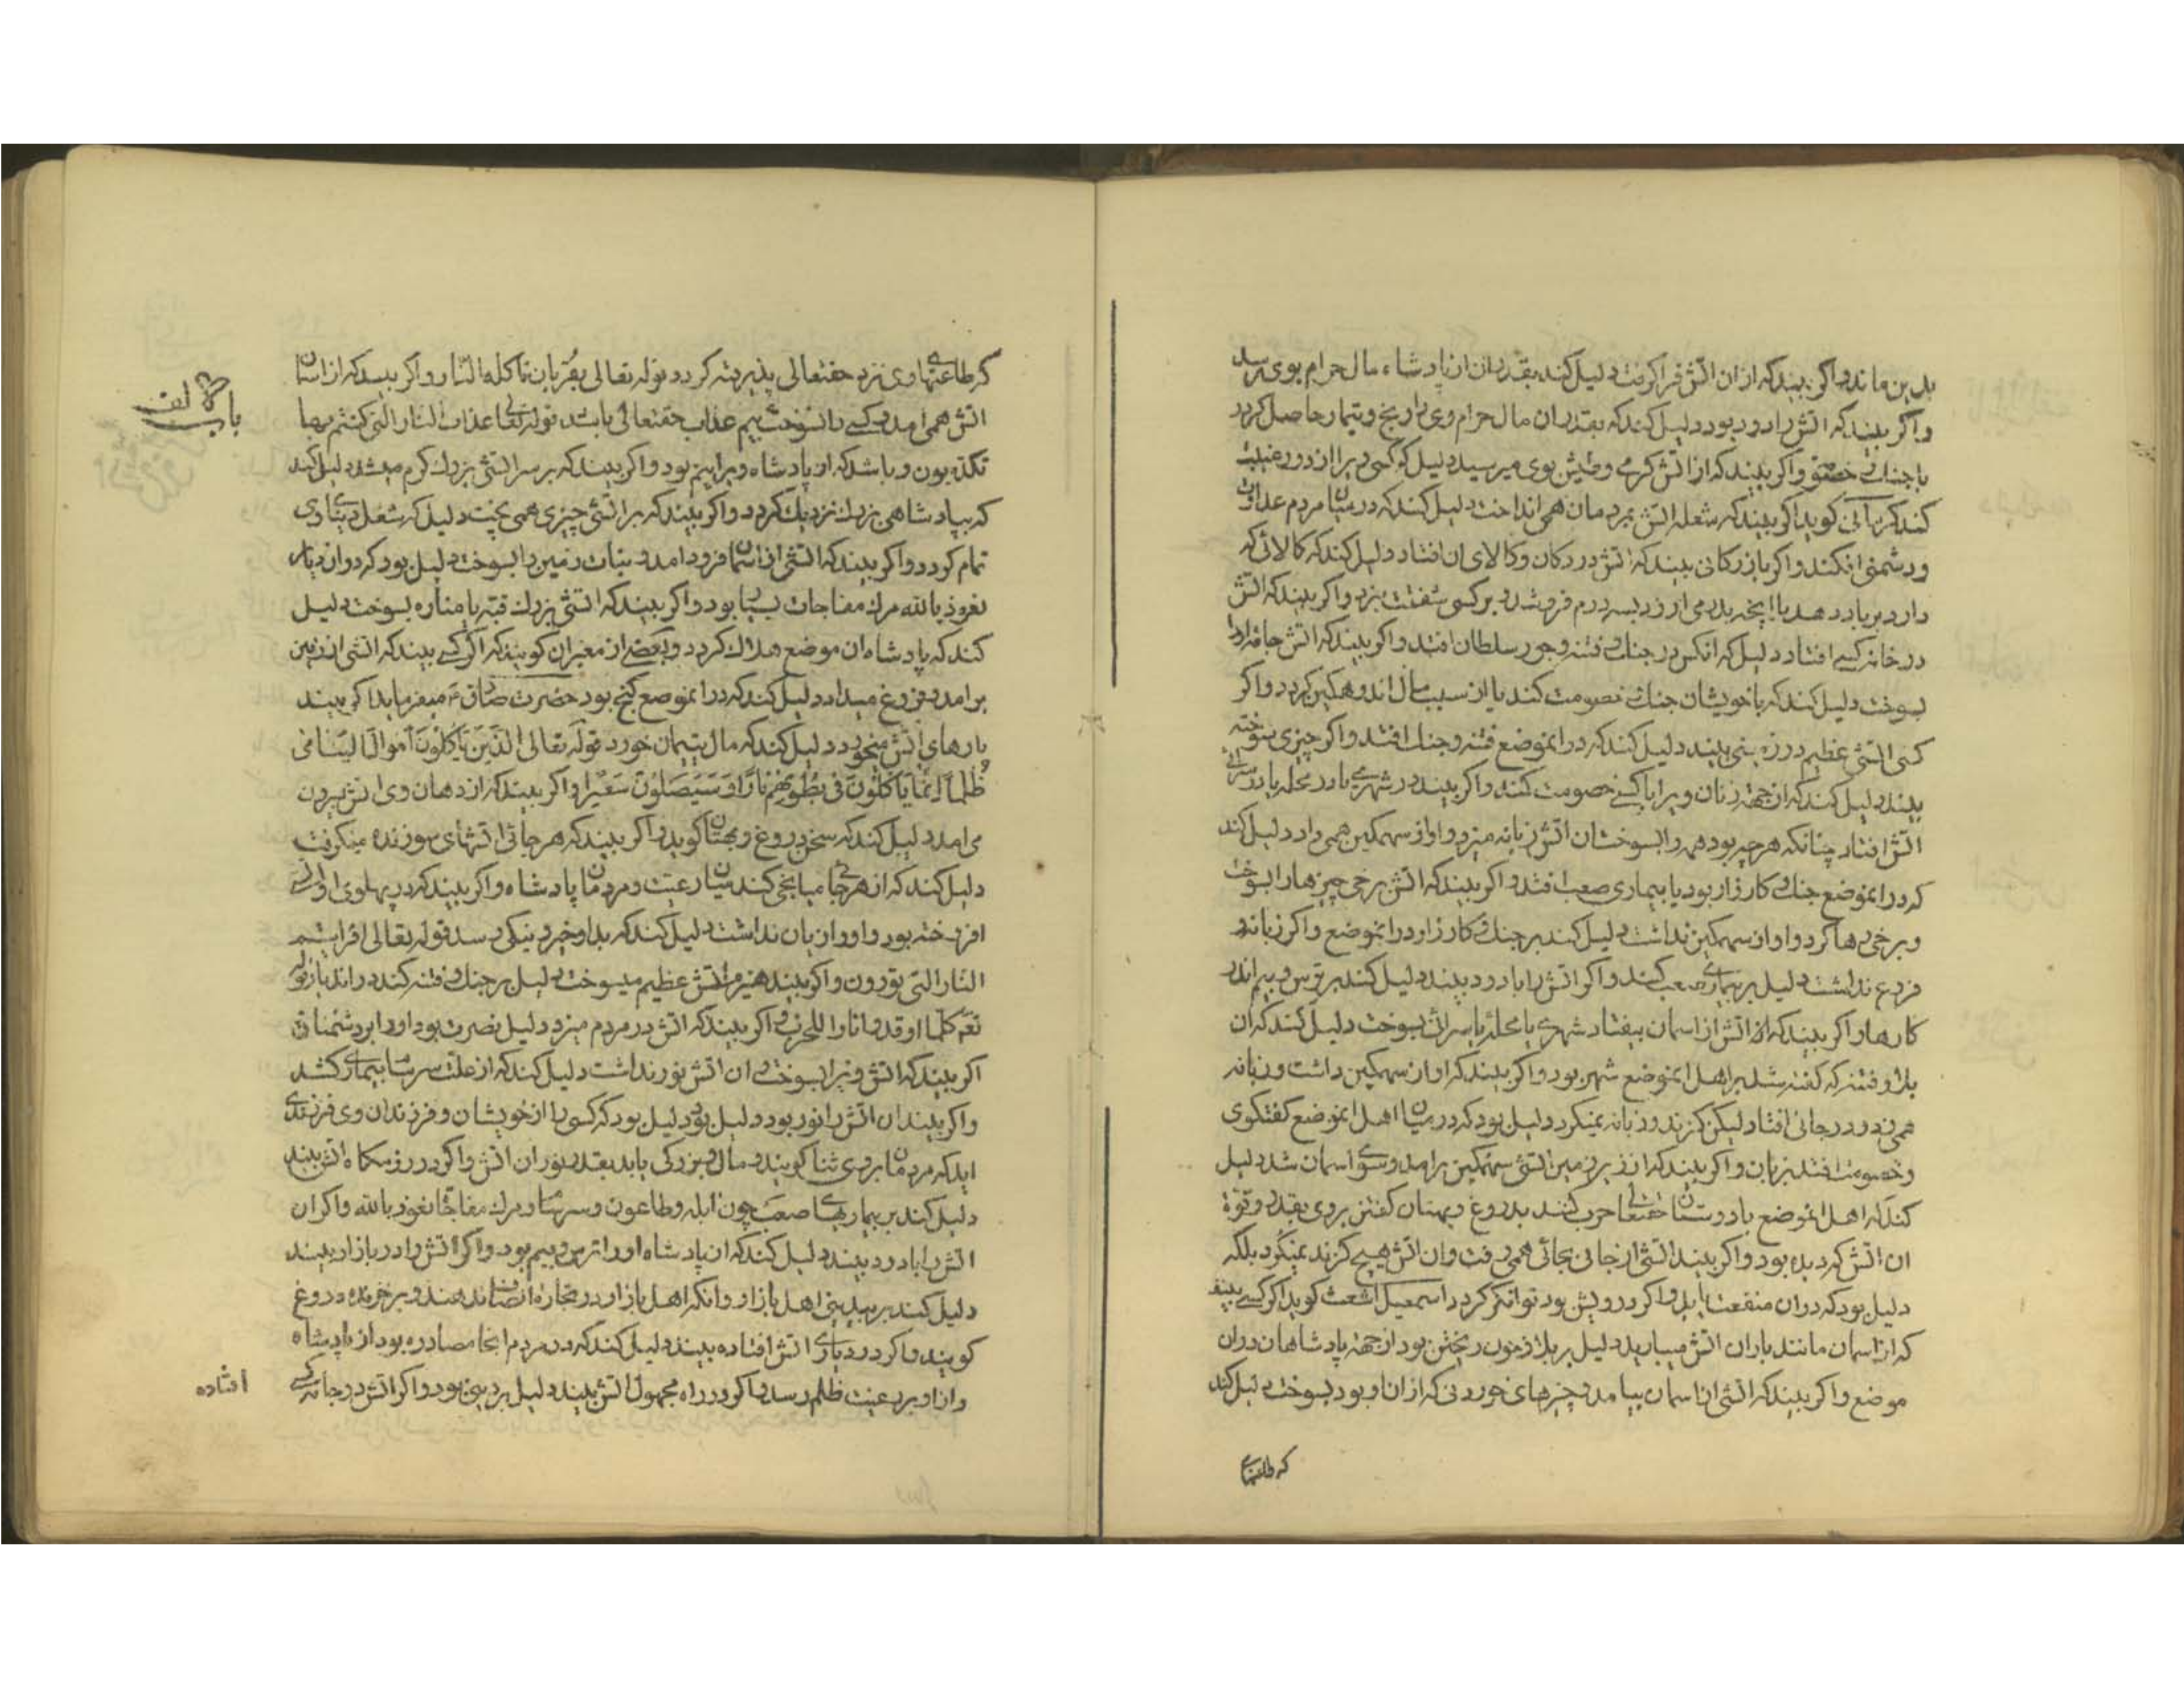 بدین ماند و اگر بیند که از ان اتش فرا گرفت دلیل کند بقدر ان از پادشاه مال حرام بوی رسد
و اگر بیند که اتش را دود بود دلیل کند که بقدر ان مال حرام وی را رنج و تیمار حاصل گردد
با جنك و خصومت و اگر بیند که از اتش گرمی و طپش بوی میرسید دلیل که کسی ویرا از دور غیبت
کند کرمانی گوید اگر بیند که شعله اتش بمردمان همی انداخت دلیل کند که در میان مردم عداوت
و دشمنی افکند و اگر بازرگانی بیند که اتش در دکان و کالای ان افتاد دلیل کند که کالائی که
دارد بر باد دهد یا انچه بدرمی ارزد بسه درم فروشد و بر کسی شفقت نبرد و اگر بیند که اتش
در خانه کسی افتاد دلیل که انکس در جنك و فتنه و جور سلطان افتد و اگر بیند که اتش جامه او را
بسوخت دلیل کند که با خویشان جنك خصومت کند یا از سبب مال اندوهگین گردد و اگر
کسی اتشی عظیم در زمینی بیند دلیل کند که در انموضع فتنه و جنك افتد و اگر چیزی سوخته
بیند دلیل کند که از جهة زنان ویرا با کسی خصومت کند و اگر بیند در شهری یا در محله یا در سرائی
اتش افتاد چنانکه هر چه بود همه را بسوخت و ان اتش زبانه میزد و اواز سهمگین همی داد دلیل کند
که در انموضع جنك و کارزار بود یا بیماری صعب افتد و اگر بیند که اتش برخی چیزها را بسوخت
و برخی رها کرد و اواز سهمگین نداشت دلیل کند بر جنك و کارزار در انموضع و اگر زبانه و
فروغ نداشت دلیل بر بیماری صعب کند و اگر اتش را با دود بیند دلیل کند بر ترس و بیم اندر
کارها و اگر بیند که اتش از اسمان بیفتاد شهری یا محله یا سرائی بسوخت دلیل کند که ان
بلا و فتنه که گفته شد بر اهل انموضع شهر بود و اگر بیند که اواز سهمگین داشت و زبانه
همی زد و در جائی افتاد لیکن گزند و زبانه نمیکرد دلیل بود که در میان اهل انموضع گفتگوی
و خصومت افتد بزبان و اگر بیند که از زیر زمین اتشی سهمگین برامد و سوی اسمان شد دلیل
کند که اهل انموضع با دوستان حقتعالی حرب کنند بدروغ و بهتان گفتن بر وی بقدر و قوة
ان اتش که دیده بود و اگر بیند اتشی از جائی بجائی همی رفت و ان اتش هیچ گزند نمیکرد بلکه
دلیل بود که در ان منفعت یابد و اگر درویش بود توانگر گردد اسمعیل اشعث گوید اگر کسی بیند
که از اسمان مانند باران اتش میبارید دلیل بر بلا و خون ریختن بود از جهة پادشاهان در ان
موضع و اگر بیند که اتشی از اسمان بیامد و چیزهای خوردنی که از ان او بود بسوخت دلیل کند
که طاعتهای
که طاعتهای وی نزد حقتعالی پذیرفته گردد قوله تعالی بقربان تاکله النار و اگر بیند که از اسمان
اتش همی امد و کسی را نسوخت بیم عذاب حقتعالی باشد قوله تعالی عذاب النار التی کنتم بها
باب الالف
تکذبون و باشد که از پادشاه ویرا بیم بود و اگر بیند که بر سر اتشی بزرك گرم میشد دلیل کند
که بپادشاهی بزرك نزدیك گردد و اگر بیند که بر اتشی چیزی همی پخت دلیل که شغل دنیاوی
تمام گردد و اگر بیند که اتشی از اسمان فرود امد و نبات زمین را بسوخت دلیل بود که در ان دیار
نعوذ بالله مرك مفاجات بسیار بود و اگر بیند که اتشی بزرك قبه یا مناره بسوخت دلیل
کند که پادشاه ان موضع هلاك گردد و بعضی از معبران گویند که اگر کسی بیند که اتشی از زمین
برامد و فروغ میداد دلیل کند که در انموضع گنج بود حضرت صادق ع میفرماید اگر بیند
پارهای اتش میخورد دلیل کند که مال یتیمان خورد قوله تعالی الَّذینَ یَاکُلُونَ اَموالَ الیَتامی
ظُلماً اِنَّما یَاکُلُونَ فی بُطُونِهِم ناراً وَ سَیَصلَونَ سَعیراً و اگر بیند که از دهان وی اتش بیرون
می امد دلیل کند که سخن دروغ و بهتان گوید و اگر بیند که هر جائی اتشهای سوزنده میگرفت
دلیل کند که از هر جائی میانجی کند میان رعیت و مردمان پادشاه و اگر بیند که در پهلوی او اتش
افروخته بود و او را زیان نداشت دلیل کند که بدو خیر و نیکی رسد قوله تعالی افرایتم
النار التی تورون و اگر بیند هیزم اتش عظیم میسوخت دلیل بر جنك و فتنه کند در اندیار قوله
تع کلما اوقدوا نارا للحرب و اگر بیند که اتش در مردم میزد دلیل نصرت بود او را بر دشمنان
اگر بیند که اتش ویرا بسوخت و ان اتش نور نداشت دلیل کند که از علت سرسام بیماری کشد
و اگر بیند ان اتش را نور بود دلیل بود که کسی را از خویشان و فرزندان وی فرزندی
اید که مردمان بر وی ثنا گویند و مال و بزرگی یابد بقدر نور ان اتش و اگر در رزمگاه اتش بیند
دلیل کند بر بیماریهای صعب چون ابله و طاعون و سرسام و مرك مفاجا نعوذ بالله و اگر ان
اتش را با دود بیند دلیل کند که از پادشاه او را ترس و بیم بود و اگر اتش را در بازار بیند
دلیل کند بر بیدینی اهل بازار و انکه اهل بازار در تجارة انصاف ندهند و بر خریده دروغ
گویند و اگر در دیاری اتش افتاده بیند دلیل کند که در مردم انجا مصادره بود از پادشاه
و از او بر رعیت ظلم رسد و اگر در راه مجهول اتش بیند دلیل بر دین بود و اگر اتش در جامه کسی
افتاده